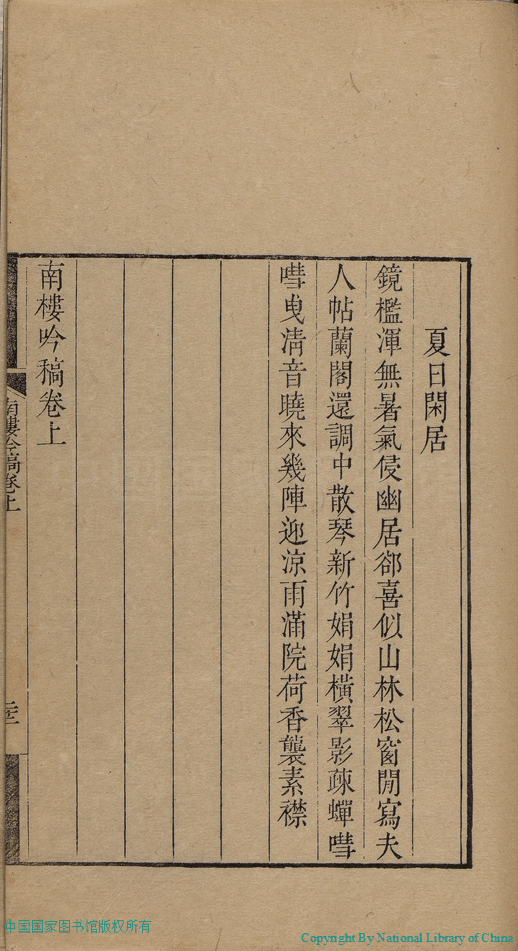 夏日閑居
鏡檻渾無暑氣侵幽居郤喜似山林松窗閒寫夫
人帖蘭閣還調中散琴新竹娟娟橫翠影疎蟬嘒
嘒曳清音曉來幾陣迎凉雨滿院荷香襲素襟
南樓吟稿卷上
南樓吟稿卷上
中国国家图书馆版权所有
Copyright By National Library of China